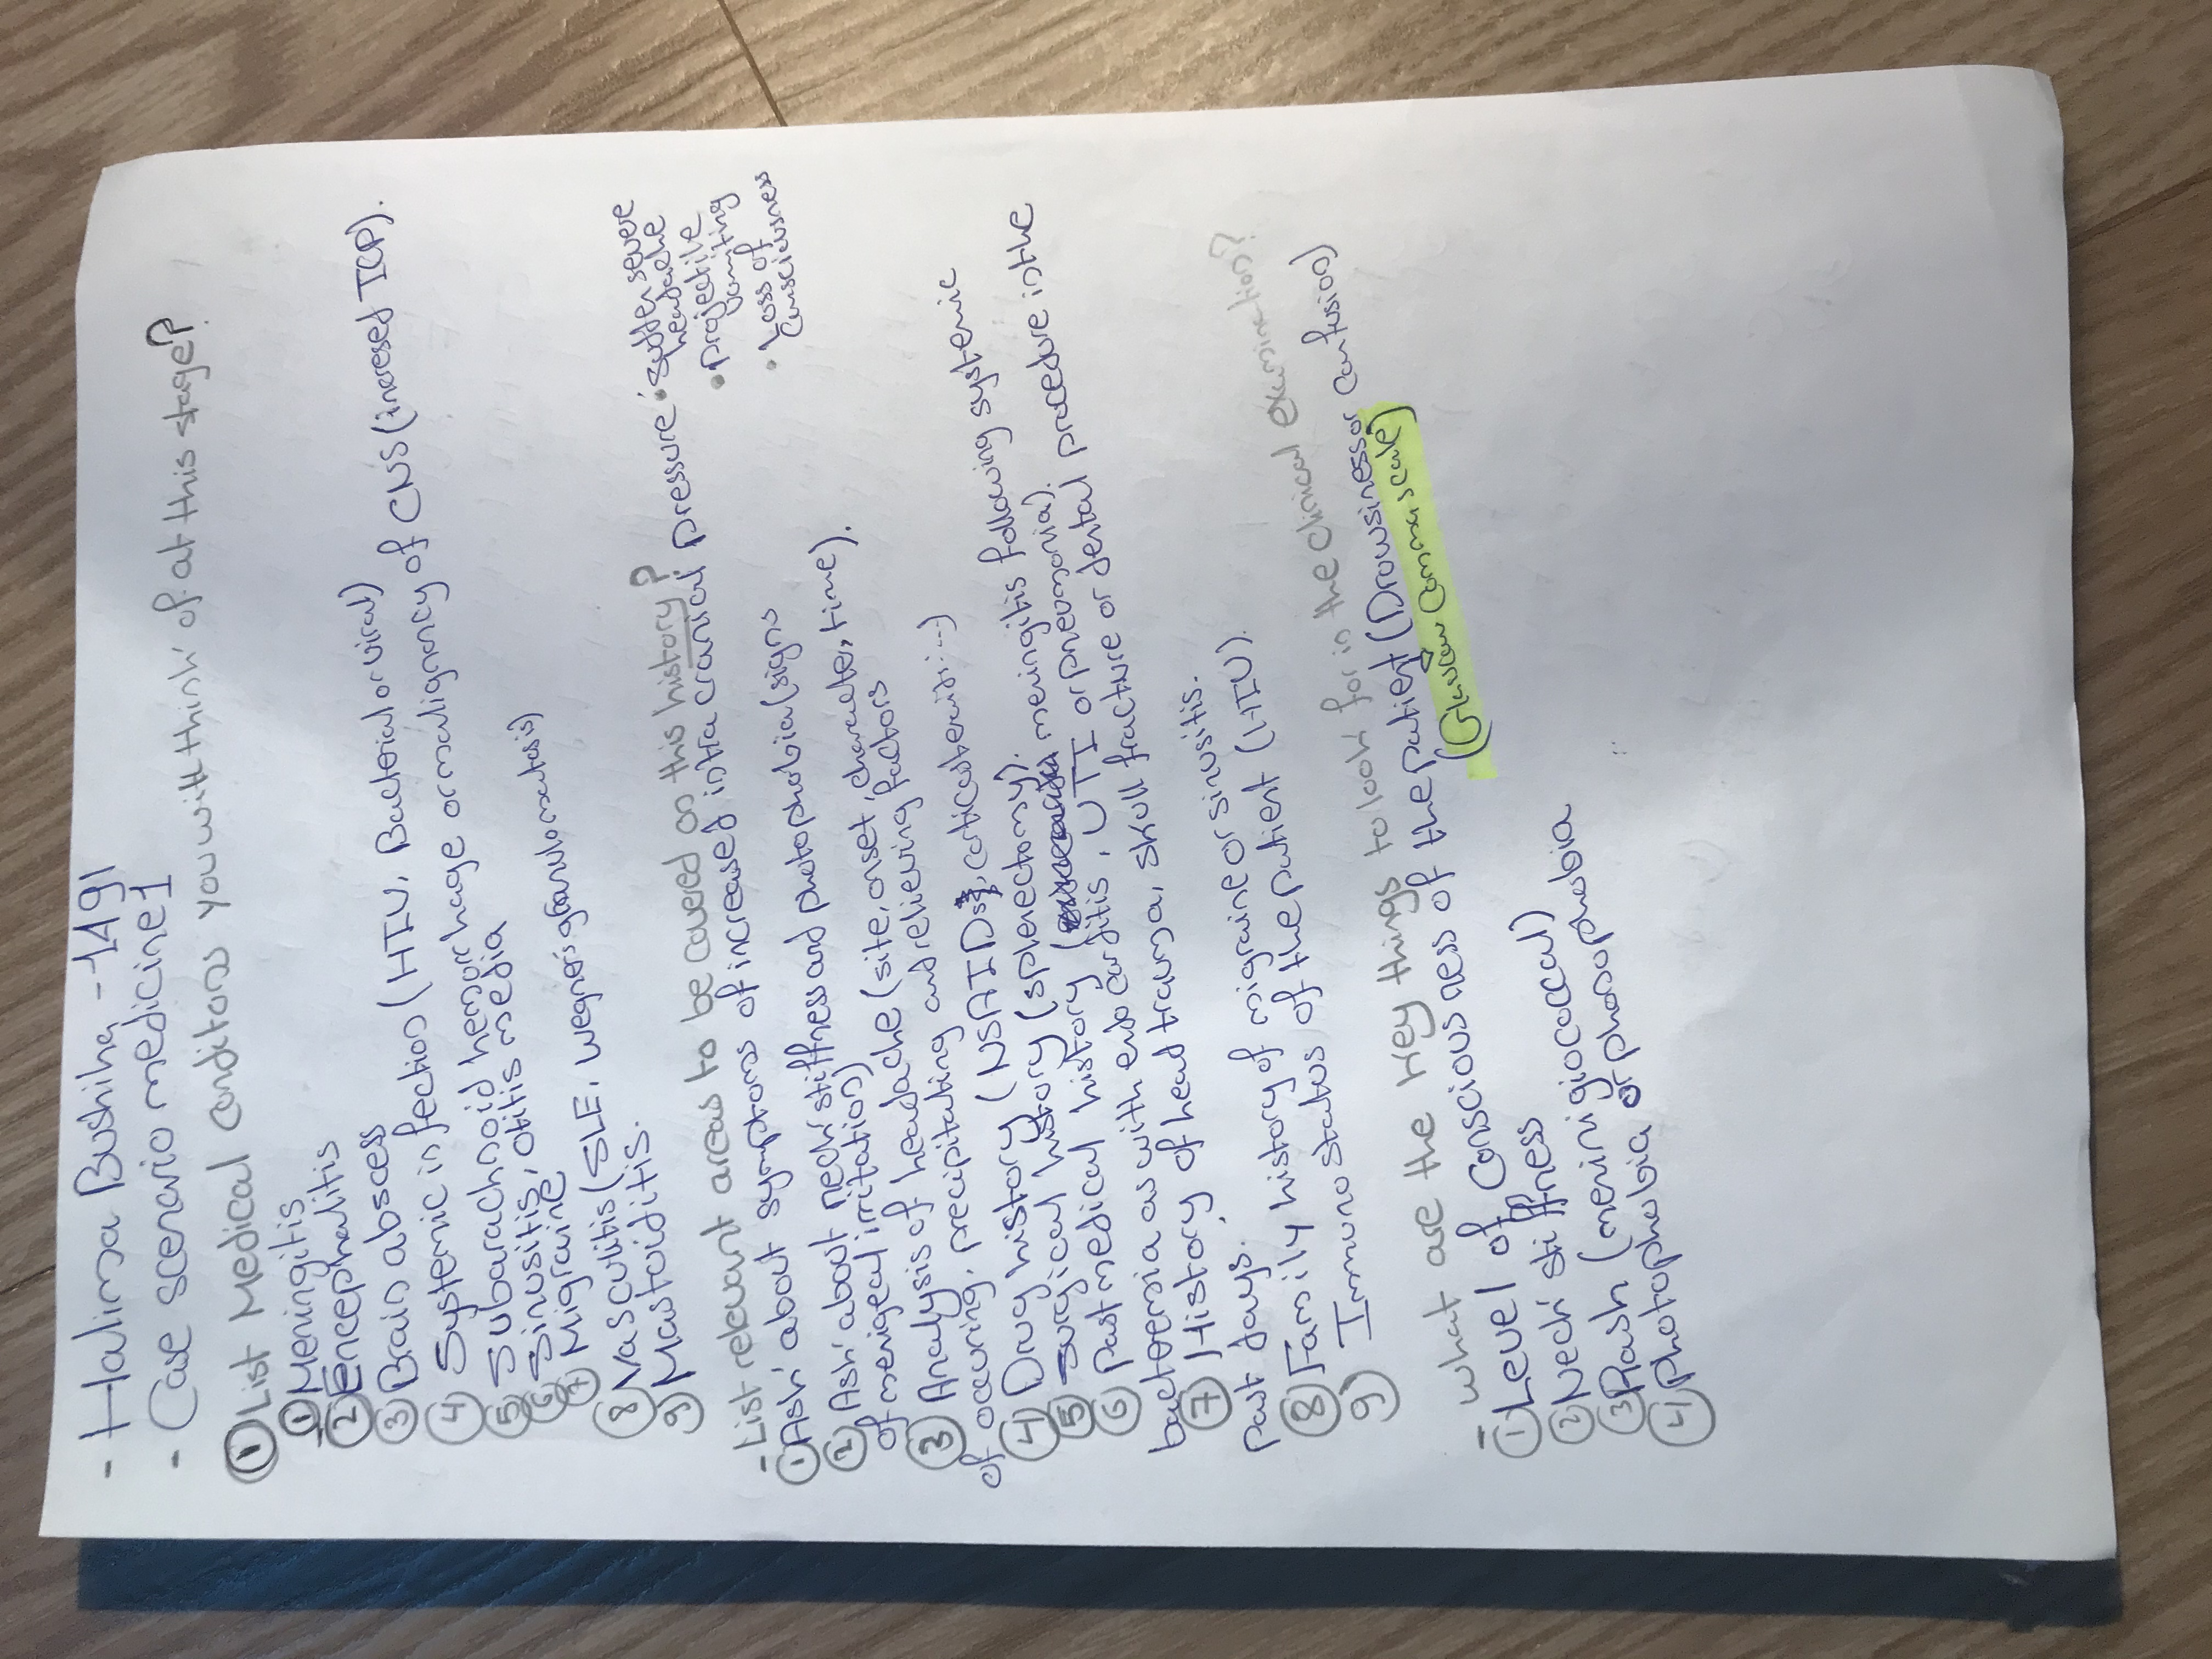 - Halima Bushiha -1491
- Case scenario medicine 1
① List Medical conditons you with think of at this stage?
① Meningitis
② Encephalitis
③ Brain abscess
④ Systemic infection (HIV, Bacterial or viral)
⑤ Subarachnoid hemorrhage or malignancy of CNS (incresed ICP).
⑥ Sinusitis, otitis media
⑦ Migraine
⑧ Vasculitis (SLE, wegner's granulomatosis)
9) Mastoiditis.
- List relevant areas to be covered on this history?
① Ask about symptoms of increased intra cranical pressure
• Sudden severe headache
• projectile vomiting
• Loss of consciousness
② Ask about neck stiffness and photophobia (signs
of menigeal irritation)
③ Analysis of headache (site, onset, character, time).
of occuring, precipitating and relieving factors
④ Drug history (NSAIDs, corticosteroid...)
⑤ Surgical history (splenectomy).
⑥ Past medical history (meningitis following systemic
bacteremia as with endocarditis, UTI or pneumonia).
⑦ History of head trauma, skull fracture or dental procedure in the
past days.
⑧ Family history of migraine or sinusitis.
9) Immuno status of the patient (HIV).
- what are the key things to look for in the clinical examination?
① Level of Consciousness of the patient (Drowsiness or Confusion)
(Glasgow Comma scale)
② Neck stiffness
③ Rash (meninigiococcal)
④ photophobia or phonophobia